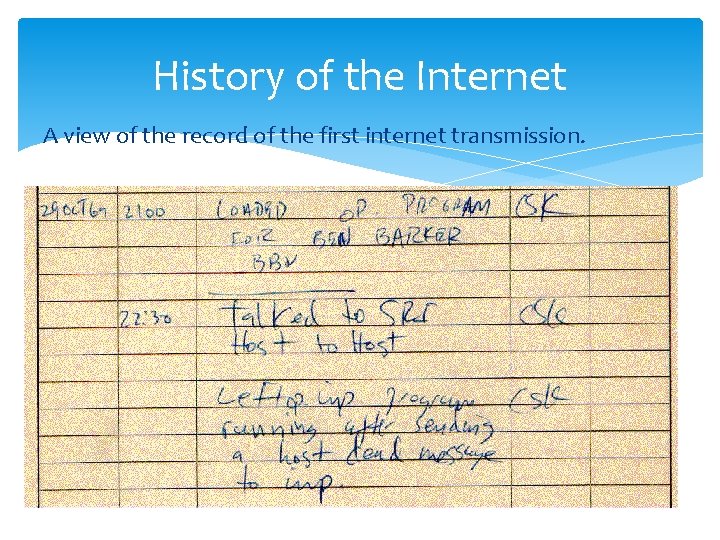 History of the Internet
A view of the record of the first internet transmission.
29 OCT 69 2100 LOADED OP. PROGRAM CSK
FOR BEN BARKER
BBN
22:30 Talked to SRI CSK
Host to Host
Left op imp program CSK
running after sending
a host dead message
to imp.